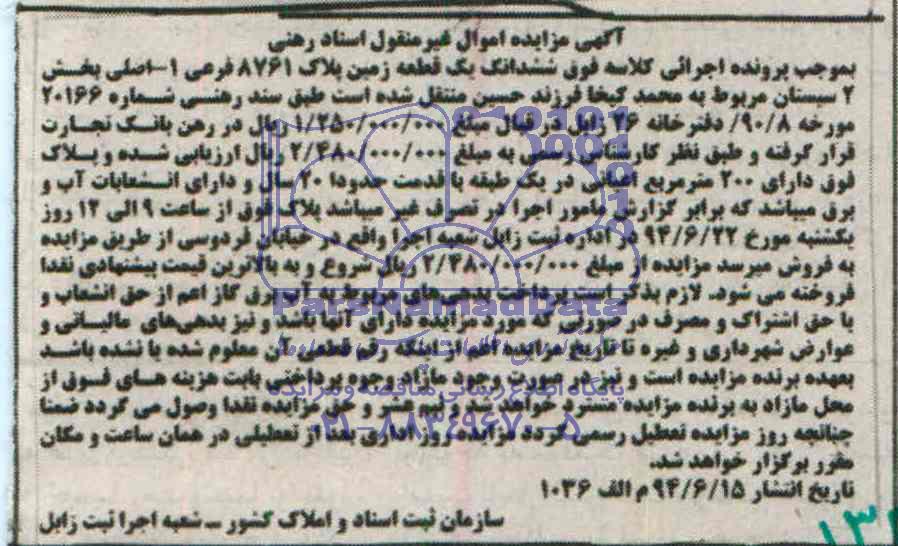 آگهی مزایده اموال غیرمنقول اسناد رهنی
بموجب پرونده اجرائی کلاسه فوق ششدانگ یک قطعه زمین پلاک ۸۷۶۱ فرعی ۱-اصلی بخش
۲ سیستان مربوط به محمد کیخا فرزند حسین منتقل شده است طبق سند رهنی شماره ۲۰۱۶۶
مورخه ۹۰/۸/ دفترخانه ۲۶ زابل در قبال مبلغ ۱/۲۵۰/۰۰۰/۰۰۰ ریال در رهن بانک تجارت
قرار گرفته و طبق نظر کارشناس رسمی به مبلغ ۲/۴۸۰/۰۰۰/۰۰۰ ریال ارزیابی شده و پلاک
فوق دارای ۲۰۰ مترمربع اعیانی در یک طبقه با قدمت حدودا ۲۰ سال و دارای انشعابات آب و
برق میباشد که برابر گزارش مامور اجرا در تصرف غیر میباشد پلاک فوق از ساعت ۹ الی ۱۲ روز
یکشنبه مورخ ۹۴/۶/۲۲ در اداره ثبت زابل شعبه اجرا واقع در خیابان فردوسی از طریق مزایده
به فروش میرسد مزایده از مبلغ ۲/۴۸۰/۰۰۰/۰۰۰ ریال شروع و به بالاترین قیمت پیشنهادی نقدا
فروخته می شود. لازم بذکر است پرداخت بدهی های مربوط به آب برق گاز اعم از حق انشعاب و
یا حق اشتراک و مصرف در صورتی که مورد مزایده دارای آنها باشد و نیز بدهی‌های مالیاتی و
عوارض شهرداری و غیره تا تاریخ مزایده اعم از اینکه رقم قطعی آن معلوم شده یا نشده باشد
بعهده برنده مزایده است و نیز در صورت وجود مازاد وجوه پرداختی بابت هزینه های فوق از
محل مازاد به برنده مزایده مسترد خواهد شد و نیم عشر و حق مزایده نقدا وصول می گردد ضمنا
چنانچه روز مزایده تعطیل رسمی گردد مزایده روز اداری بعد از تعطیلی در همان ساعت و مکان
مقرر برگزار خواهد شد.
تاریخ انتشار ۹۴/۶/۱۵ م الف ۱۰۳۶
سازمان ثبت اسناد و املاک کشور ــ شعبه اجرا ثبت زابل
ParsNamadData
پایگاه اطلاع رسانی مناقصه و مزایده
۰۲۱-۸۸۳۴۹۶۷۰-۵